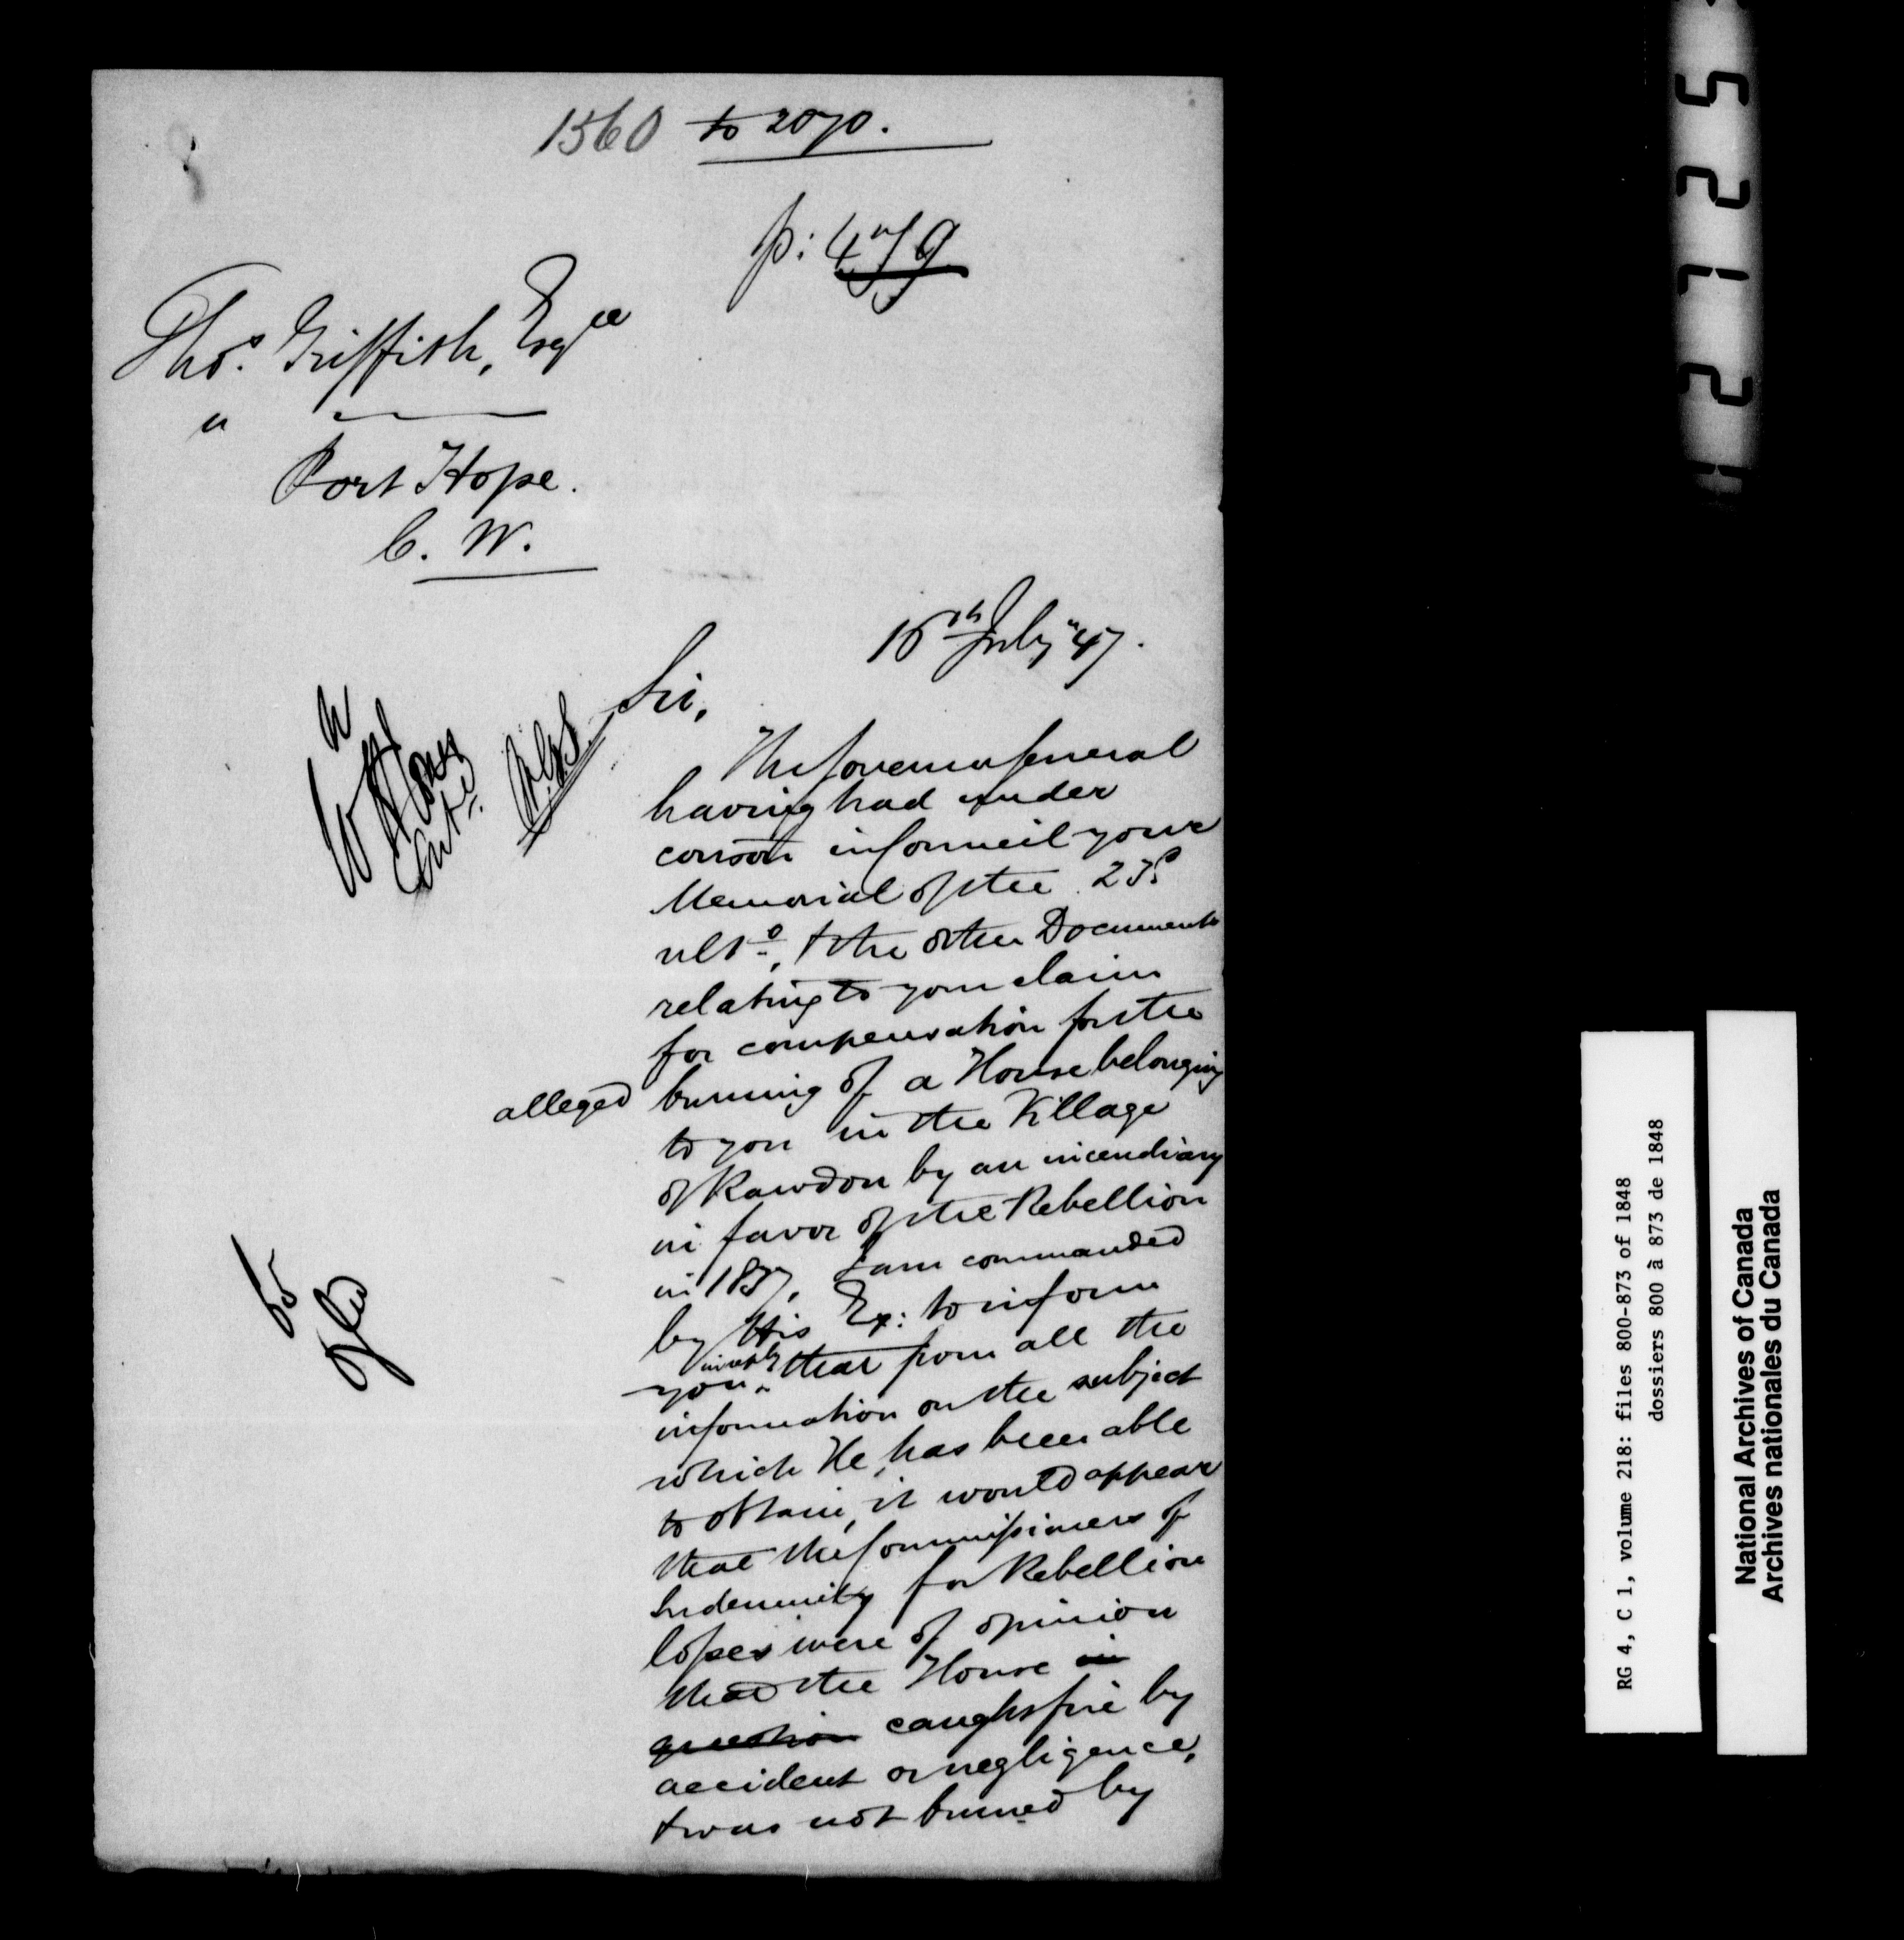 1560 to 2070.
p: 479
Thos. Griffith, Esqre
" 
Port Hope.
C. W.
16th July "47.
Sir,
The Governor General
having had under
conson in Council your
Memorial of the 23d
ulto, & the other Documents
relating to your claim
for compensation for the
alleged burning of a House belonging
to you in the Village
of Rawdon by an incendiary
in favor of the Rebellion
in 1837, I am commanded
by His Ex: to inform
you that from all the
information on the subject
which He has been able
to obtain, it would appear
that the Commissioners of
Indemnity for Rebellion
losses were of opinion
that the House in
question caught fire by
accident or negligence,
& was not burned by
RG 4, C 1, volume 218: files 800-873 of 1848
dossiers 800 à 873 de 1848
National Archives of Canada
Archives nationales du Canada